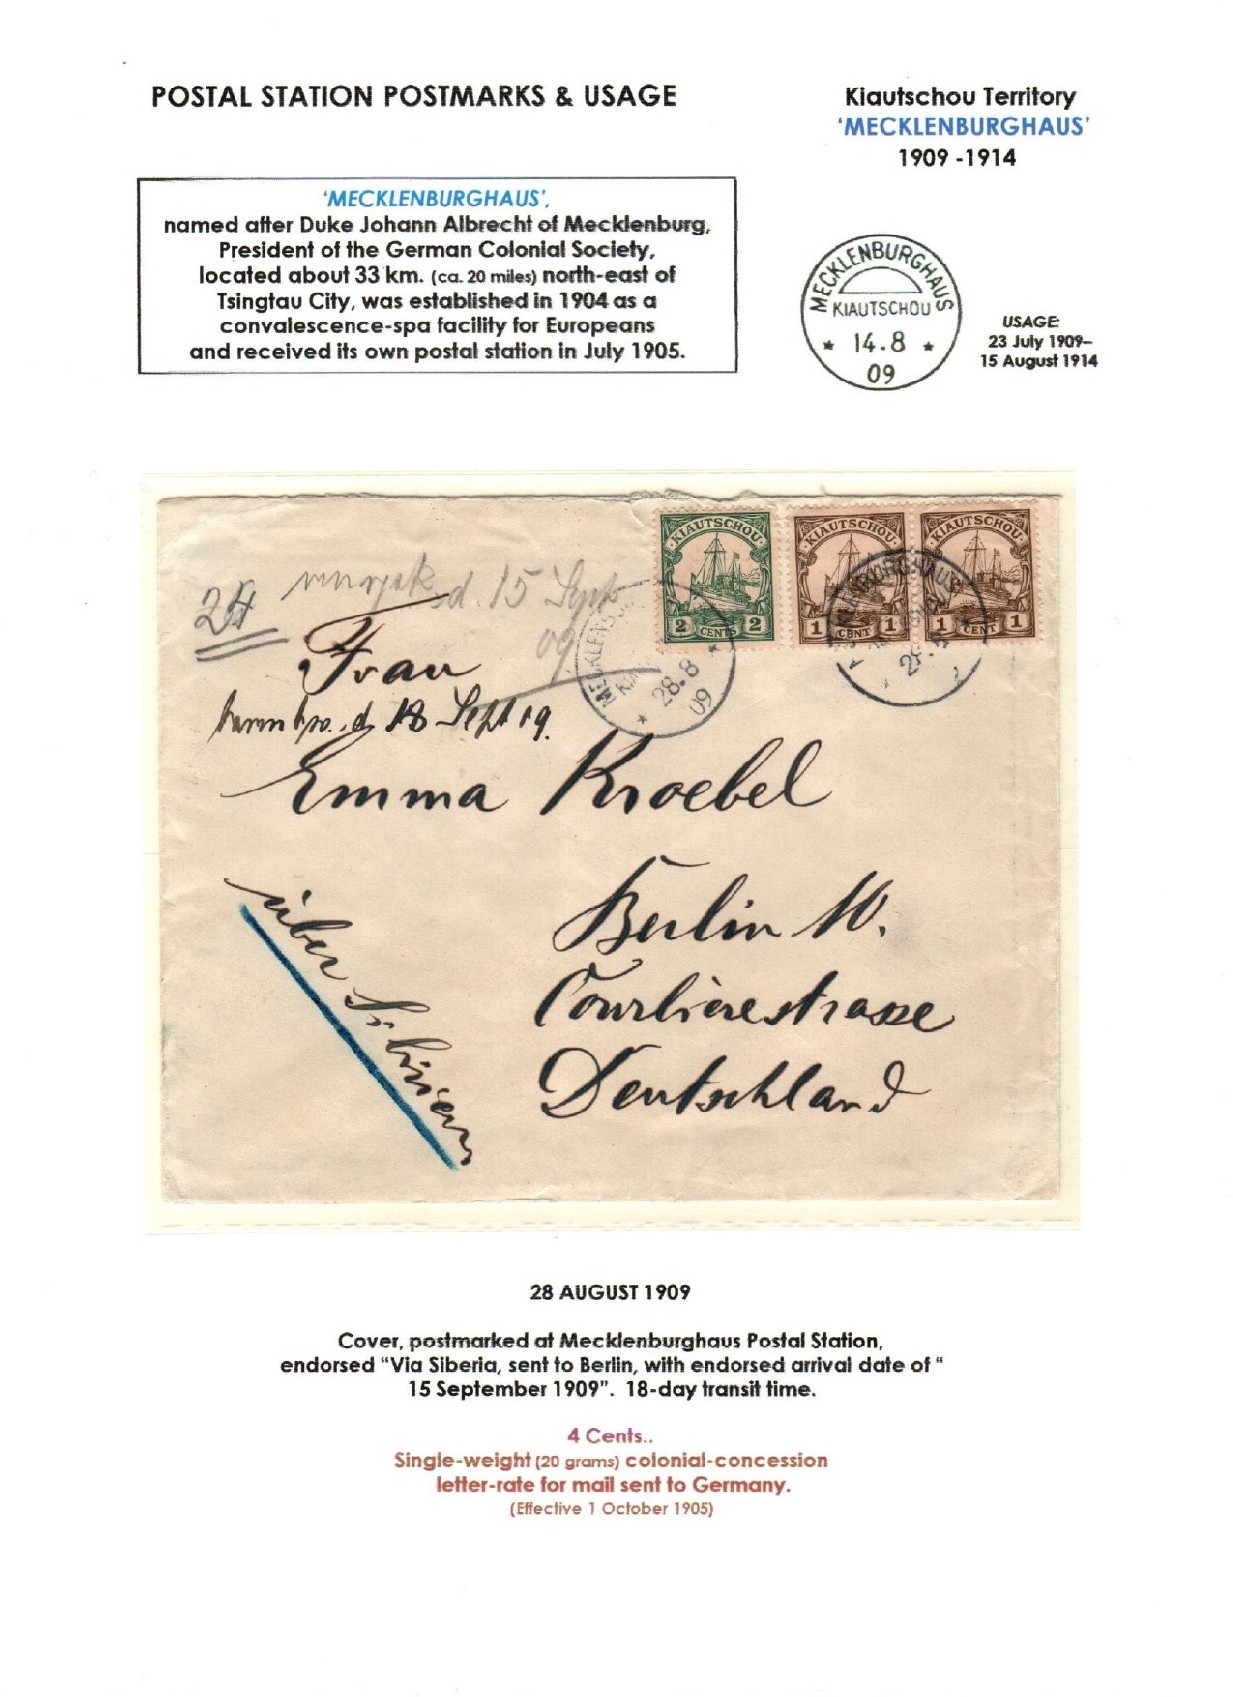 POSTAL STATION POSTMARKS & USAGE
Kiautschou Territory
‘MECKLENBURGHAUS’
1909 -1914
‘MECKLENBURGHAUS’,
named after Duke Johann Albrecht of Mecklenburg,
President of the German Colonial Society,
located about 33 km. (ca. 20 miles) north-east of
Tsingtau City, was established in 1904 as a
convalescence-spa facility for Europeans
and received its own postal station in July 1905.
MECKLENBURGHAUS
KIAUTSCHOU
* 14.8 *
09
USAGE:
23 July 1909–
15 August 1914
KIAUTSCHOU
2 CENTS 2
KIAUTSCHOU
1 CENT 1
KIAUTSCHOU
1 CENT 1
28.8
09
d. 15 Sept
09.
Frau
d. 18 Sept 09.
Emma Kroebel
Berlin W.
Courbièrestrasse
Deutschland
über Sibirien
28 AUGUST 1909
Cover, postmarked at Mecklenburghaus Postal Station,
endorsed “Via Siberia, sent to Berlin, with endorsed arrival date of “
15 September 1909”. 18-day transit time.
4 Cents..
Single-weight (20 grams) colonial-concession
letter-rate for mail sent to Germany.
(Effective 1 October 1905)